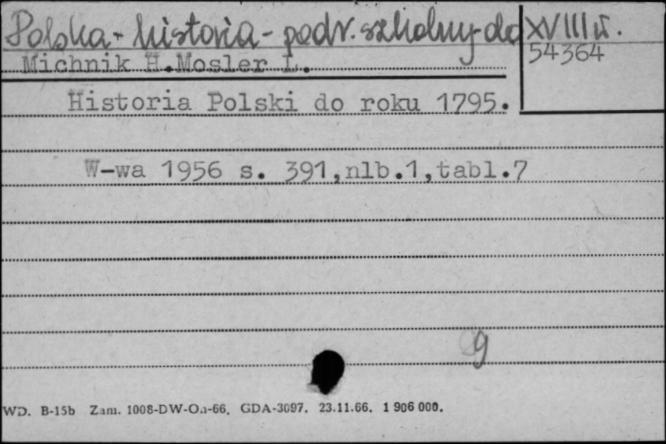 Polska - historia - podr. szkolny - do XVIII w.
54364
Michnik H.Mosler L.
Historia Polski do roku 1795.
W-wa 1956 s. 391,nlb.1,tabl.7
g
WD. B-15b Zam. 1008-DW-Oa-66. GDA-3097. 23.11.66. 1 906 000.